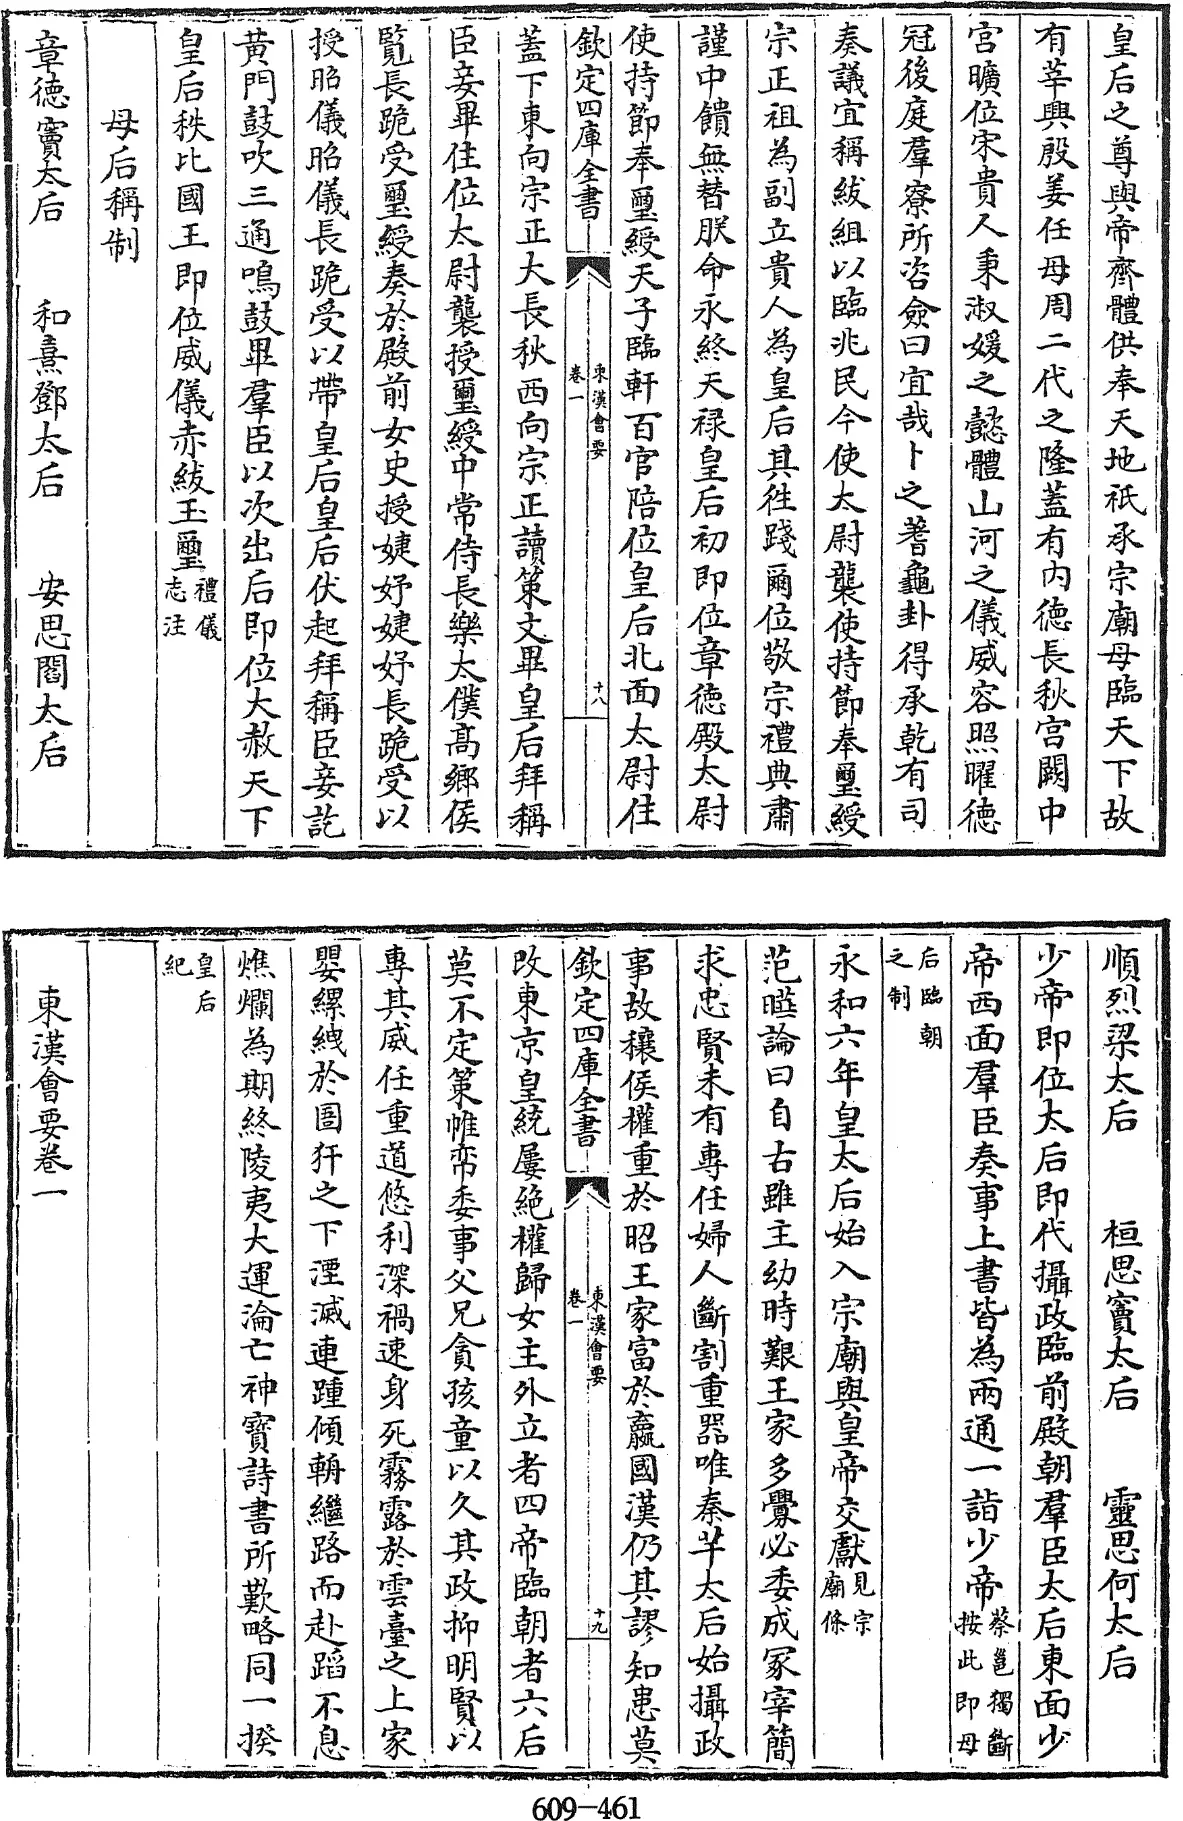 皇后之尊與帝齊體供奉天地祇承宗廟母臨天下故
有莘興殷姜任母周二代之隆蓋有内德長秋宫闕中
宫曠位宋貴人秉淑媛之懿體山河之儀威容照曜德
冠後庭羣寮所咨僉曰宜哉卜之蓍龜卦得承乾有司
奏議宜稱紱組以臨兆民今使太尉襲使持節奉璽綬
宗正祖為副立貴人為皇后其徃踐爾位敬宗禮典肅
謹中饋無替朕命永終天禄皇后初即位章德殿太尉
使持節奉璽綬天子臨軒百官陪位皇后北面太尉住
欽定四庫全書
東漢會要
卷一
十八
蓋下東向宗正大長秋西向宗正讀策文畢皇后拜稱
臣妾畢住位太尉襲授璽綬中常侍長樂太僕高鄉侯
覽長跪受璽綬奏於殿前女史授婕妤婕妤長跪受以
授昭儀昭儀長跪受以帶皇后皇后伏起拜稱臣妾訖
黄門鼓吹三通鳴鼓畢羣臣以次出后即位大赦天下
皇后秩比國王即位威儀赤紱玉璽禮儀
志注
母后稱制
章德竇太后　和熹鄧太后　安思閻太后
順烈梁太后　桓思竇太后　靈思何太后
少帝即位太后即代攝政臨前殿朝羣臣太后東面少
帝西面羣臣奏事上書皆為兩通一詣少帝蔡邕獨斷
按此即母
后臨朝
之制
永和六年皇太后始入宗廟與皇帝交獻見宗
廟條
范曄論曰自古雖主幼時艱王家多釁必委成冢宰簡
求忠賢未有專任婦人斷割重器唯秦芊太后始攝政
事故穰侯權重於昭王家富於嬴國漢仍其謬知患莫
欽定四庫全書
東漢會要
卷一
十九
改東京皇統屢絶權歸女主外立者四帝臨朝者六后
莫不定策帷帟委事父兄貪孩童以久其政抑明賢以
專其威任重道悠利深禍速身死霧露於雲臺之上家
嬰縲絏於圄犴之下湮滅連踵傾輈繼路而赴蹈不息
燋爛為期終陵夷大運淪亡神寶詩書所歎略同一揆
皇后
紀
東漢會要卷一
609-461